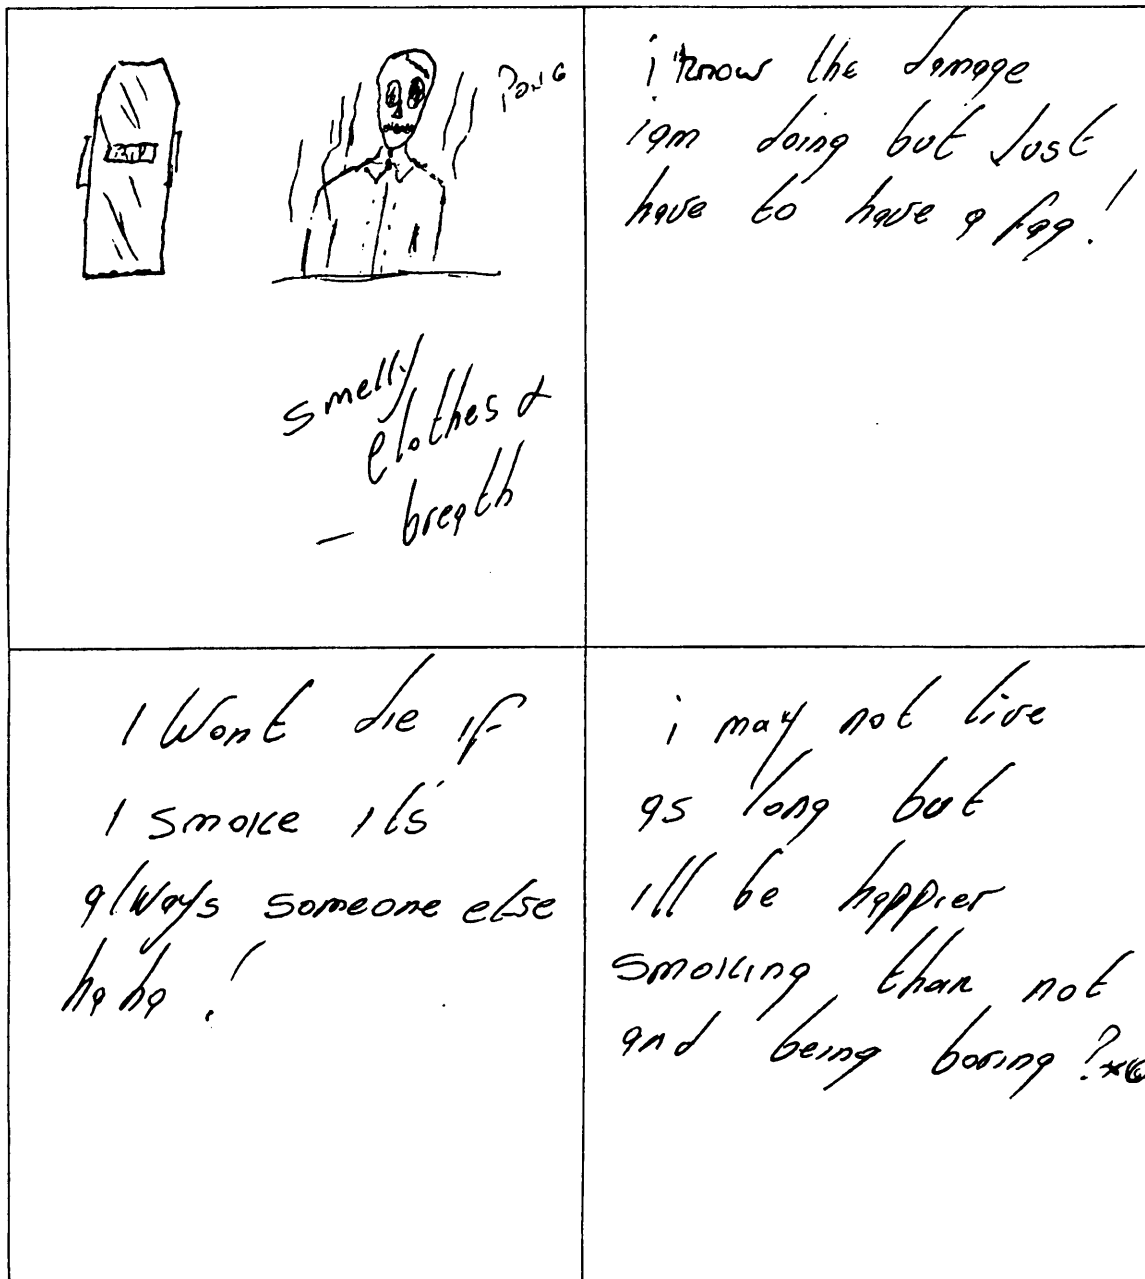 PONG
smelly
clothes &
- breath
i know the damage
iam doing but Just
have to have a fag!
I Wont die if
I smoke it's
always someone else
ha ha !
i may not live
as long but
ill be happier
smoking than not
and being boring ?